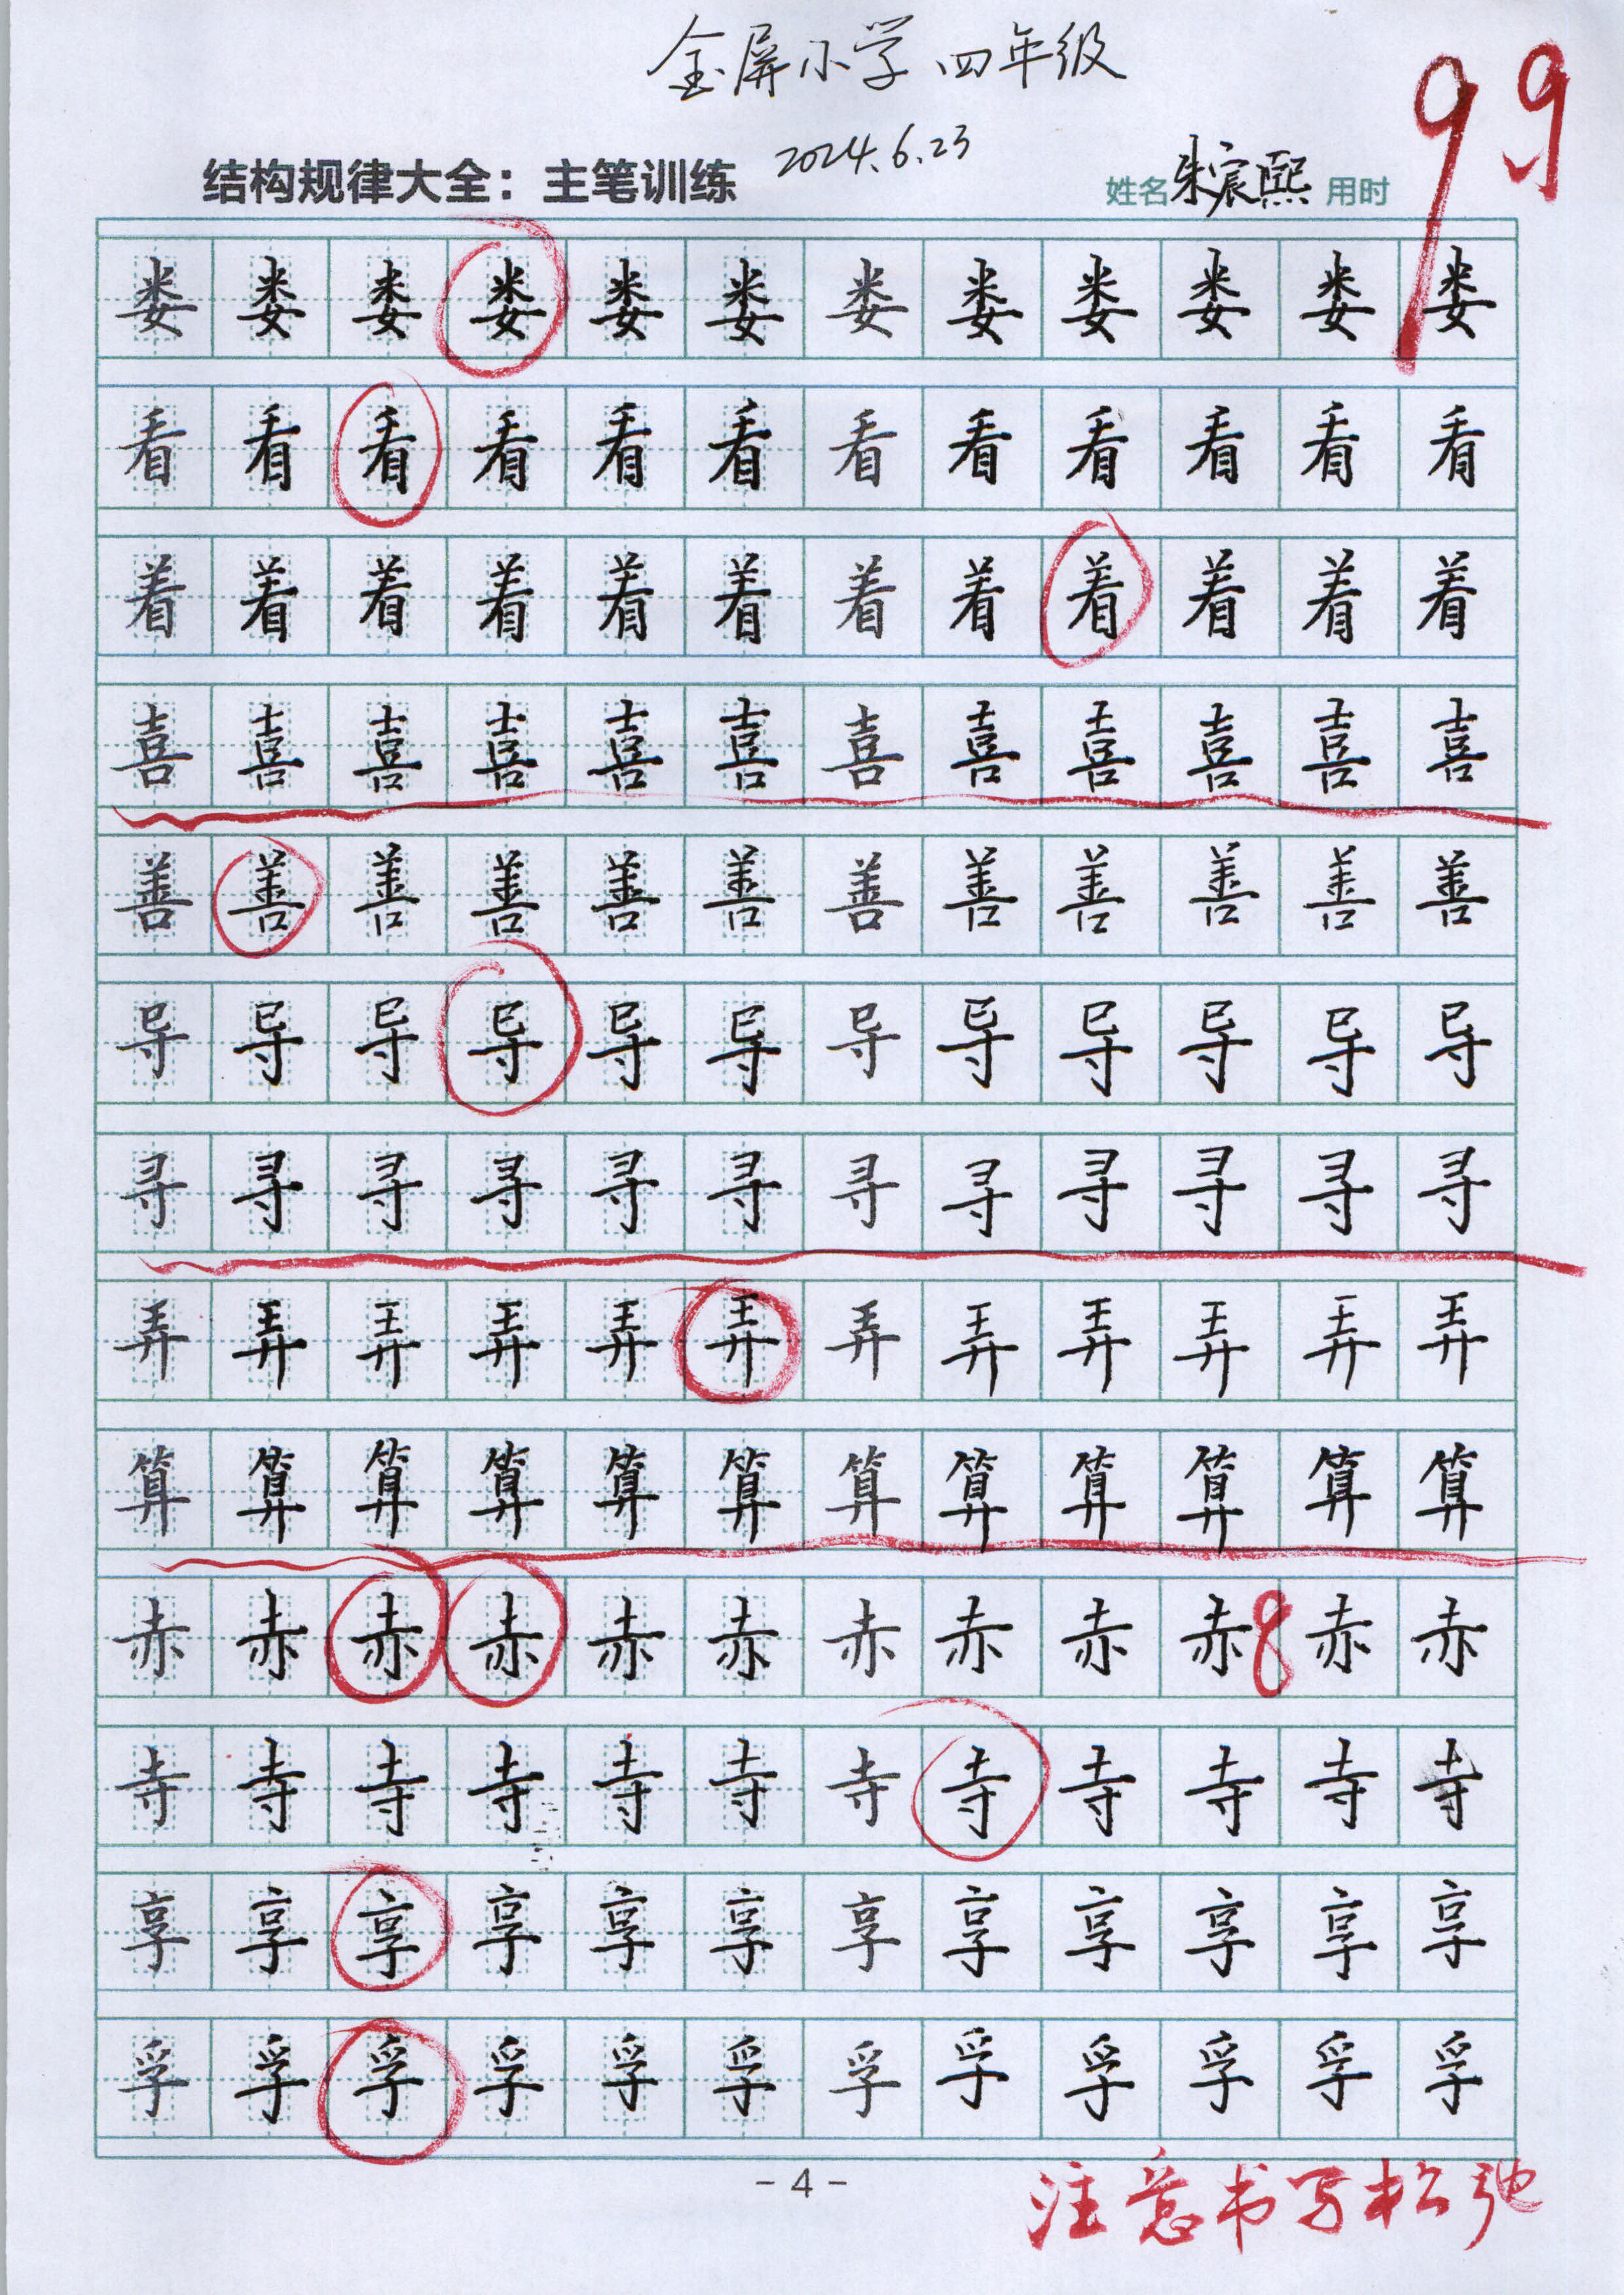 金屏小学 四年级
99
2024.6.23
结构规律大全：主笔训练 姓名 朱宸熙 用时
娄娄娄娄娄娄娄娄娄娄娄娄
看看看看看看看看看看看看
着着着着着着着着着着着着
喜喜喜喜喜喜喜喜喜喜喜喜
善善善善善善善善善善善善
导导导导导导导导导导导导
寻寻寻寻寻寻寻寻寻寻寻寻
弄弄弄弄弄弄弄弄弄弄弄弄
算算算算算算算算算算算算
赤赤赤赤赤赤赤赤赤赤8赤赤
寺寺寺寺寺寺寺寺寺寺寺寺
享享享享享享享享享享享享
孚孚孚孚孚孚孚孚孚孚孚孚
-4-
注意书写松弛